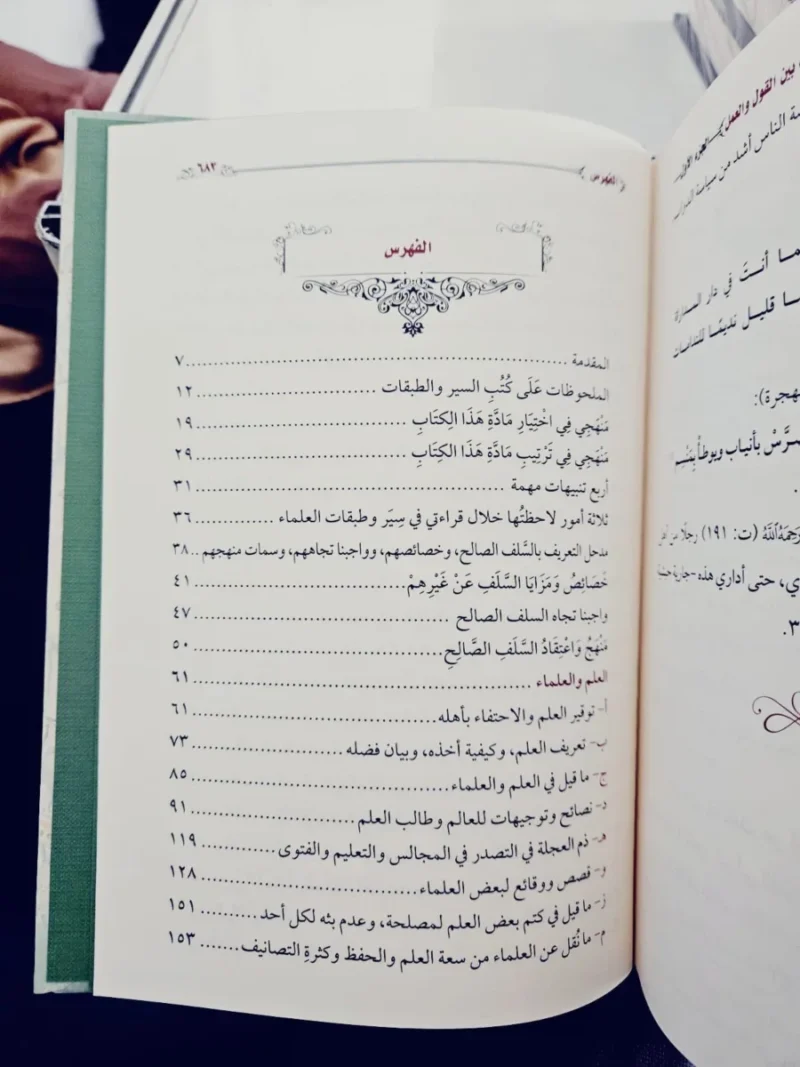 بين القول والعمل
الجزء الأول
الناس أشد من سياسة الدواب
ما أنتَ في دار المداراة
قليل نديمًا للندامات
هجرة):
بأنياب ويوطأ بِمَنْسِم
رَحِمَهُ اللَّهُ (ت: ١٩١) رجلًا من أهل
ي، حتى أداري هذه
٣.
الفهرس
٦٨٣
الفهرس
المقدمة ............ ٧
الملحوظات عَلَى كُتُبِ السير والطبقات ............ ١٢
مَنْهَجِي فِي اخْتِيَارِ مَادَّةِ هَذَا الكِتَابِ ............ ١٩
مَنْهَجِي فِي تَرْتِيبِ مَادَّةِ هَذَا الكِتَابِ ............ ٢٩
أربع تنبيهات مهمة ............ ٣١
ثلاثة أمور لاحظتُها خلال قراءتي في سِيَر وطبقات العلماء ............ ٣٦
مدخل التعريف بالسَّلف الصالح، وخصائصهم، وواجبنا تجاههم، وسمات منهجهم ..٣٨
خَصَائِصُ وَمَزَايَا السَّلَفِ عَنْ غَيْرِهِمْ ............ ٤١
واجبنا تجاه السلف الصالح ............ ٤٧
مَنْهَجُ وَاعْتِقَادُ السَّلَفِ الصَّالِحِ ............ ٥٠
العلم والعلماء ............ ٦١
أ- توقير العلم والاحتفاء بأهله ............ ٦١
ب- تعريف العلم، وكيفية أخذه، وبيان فضله ............ ٧٣
ج- ما قيل في العلم والعلماء ............ ٨٥
د- نصائح وتوجيهات للعالم وطالب العلم ............ ٩١
هـ- ذم العجلة في التصدر في المجالس والتعليم والفتوى ............ ١١٩
و- قصص ووقائع لبعض العلماء ............ ١٢٨
ز- ما قيل في كتم بعض العلم لمصلحة، وعدم بثه لكل أحد ............ ١٥١
م- ما نُقل عن العلماء من سعة العلم والحفظ وكثرةِ التصانيف ....... ١٥٣